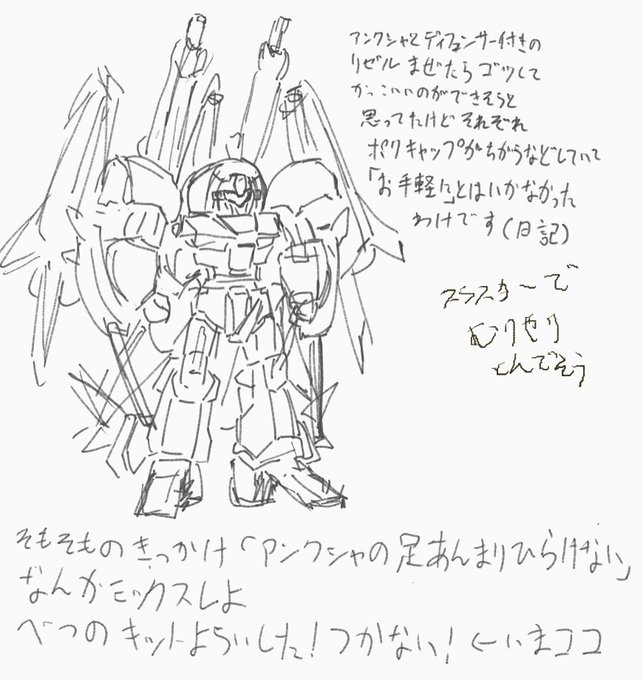 アンクシャとディフェンサー付きの
リゼル まぜたら ゴツして
かっこいいのができそうと
思ってたけど それぞれ
ポリキャップがちがうなどしていて
「お手軽に」とはいかなかった
わけです(日記)
スラスターで
むりやり
とんでそう
そもそものきっかけ「アンクシャの足あんまりひらけない」
なんかミックスしよ
べつのキットよういした!つかない!←いまココ